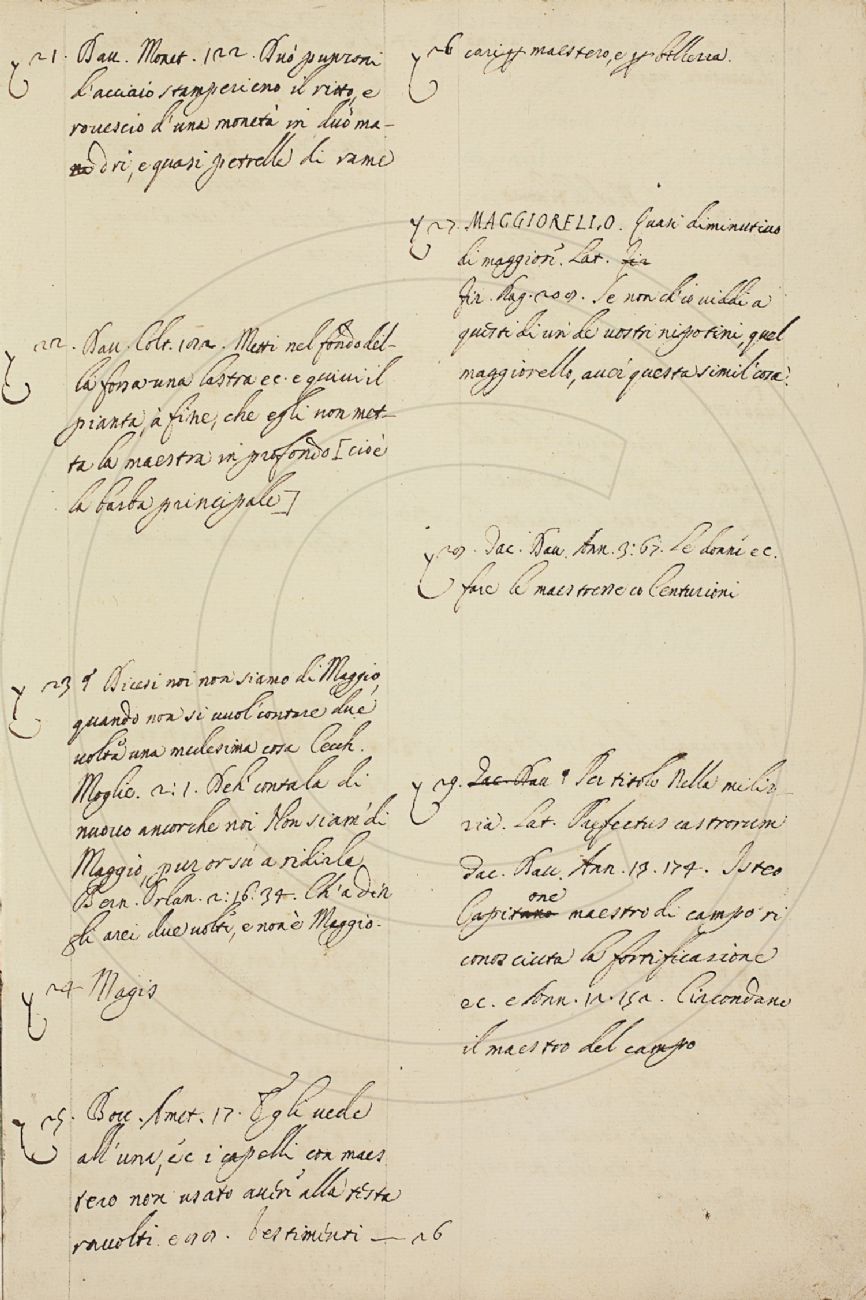 21. Dav. Monet. 122. Duo punzoni
d'acciaio stamperieno il ritto, e
rovescio d'una moneta in duo ma-
dri, e quasi petrelle di rame
22. Dav. Colt. 182. Metti nel fondo del-
la fossa una lastra ec. e quivi il
pianta, à fine, che egli non met-
ta la maestra in profondo [cioè
la barba principale]
23 ¶ Dicesi noi non siamo di Maggio,
quando non si vuol contare due
volte una medesima cosa Cecch.
Moglie. 2: 1. Deh contala di
nuovo ancorche noi Non siam di
Maggio, pur orsù a ridirla
Bern. Orlan. 2: 16. 34. Ch'a dir
gli arei due volte, e non è Maggio.
24 Magis
25. Bocc. Amet. 17. Egli vede
all'una, ec i capelli con maes
tero non usato avere alla testa
ravolti e 88. Vestimenti — 26
26 cari maestero, e bellezza.
27. MAGGIORELLO. Quasi diminutivo
di maggiore. Lat.
Fir. Rag. 208. Se non ch'io viddi a
questi dì un de vostri nipotini, quel
maggiorello, aver questa simil cosa.
28. Tac. Dav. Ann. 3: 67. Le donne ec.
fare le maestresse co Centurioni
29. Tac. Dav ¶ Per titolo Nella mili-
zia. Lat. Praefectus castrorum
Tac. Dav. Ann. 13. 174. Isteo
Capitone maestro di campo ri
conosciuta la fortificazione
ec. e Ann. 12. 152. Circondano
il maestro del campo